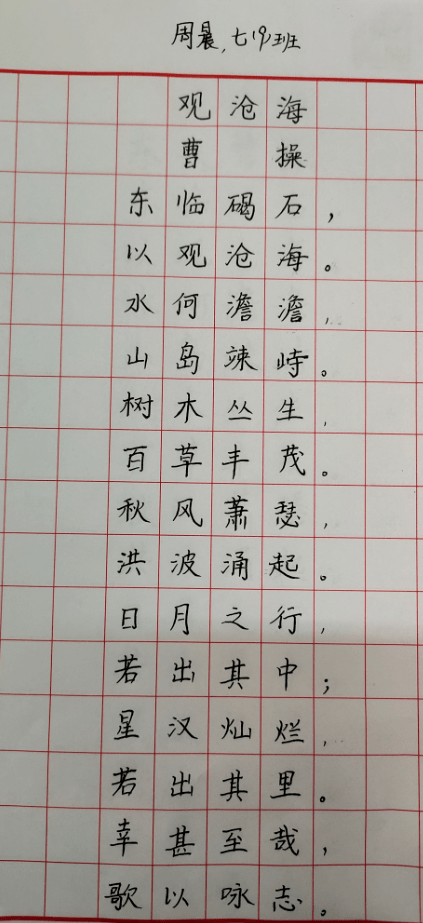 周晨,七19班
观沧海
曹操
东临碣石，
以观沧海。
水何澹澹，
山岛竦峙。
树木丛生，
百草丰茂。
秋风萧瑟，
洪波涌起。
日月之行，
若出其中；
星汉灿烂，
若出其里。
幸甚至哉，
歌以咏志。